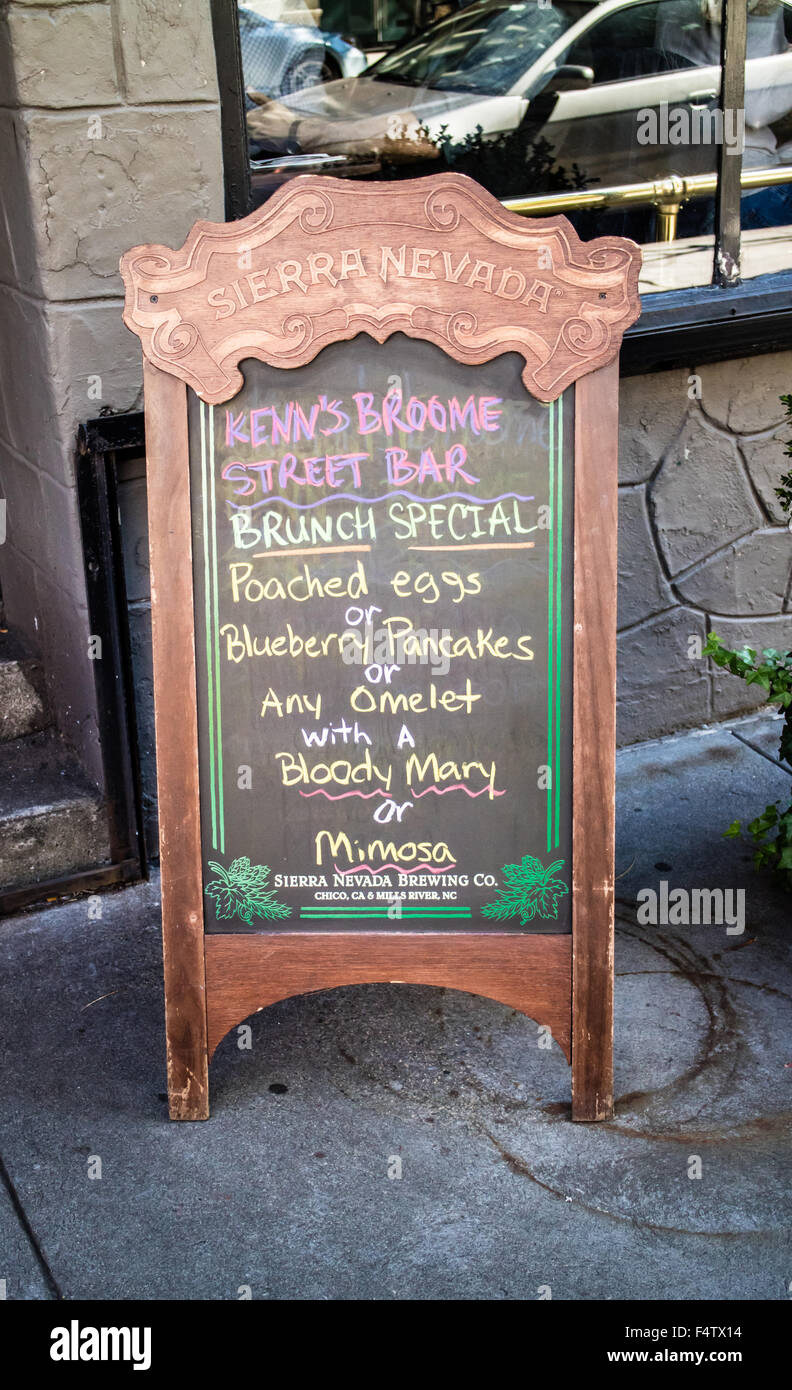 SIERRA NEVADA
KENN'S BROOME
STREET BAR
BRUNCH SPECIAL
Poached eggs
or
Blueberry Pancakes
or
Any Omelet
with A
Bloody Mary
or
Mimosa
SIERRA NEVADA BREWING CO.
CHICO, CA & MILLS RIVER, NC
alamy
alamy stock photo
F4TX14
www.alamy.com